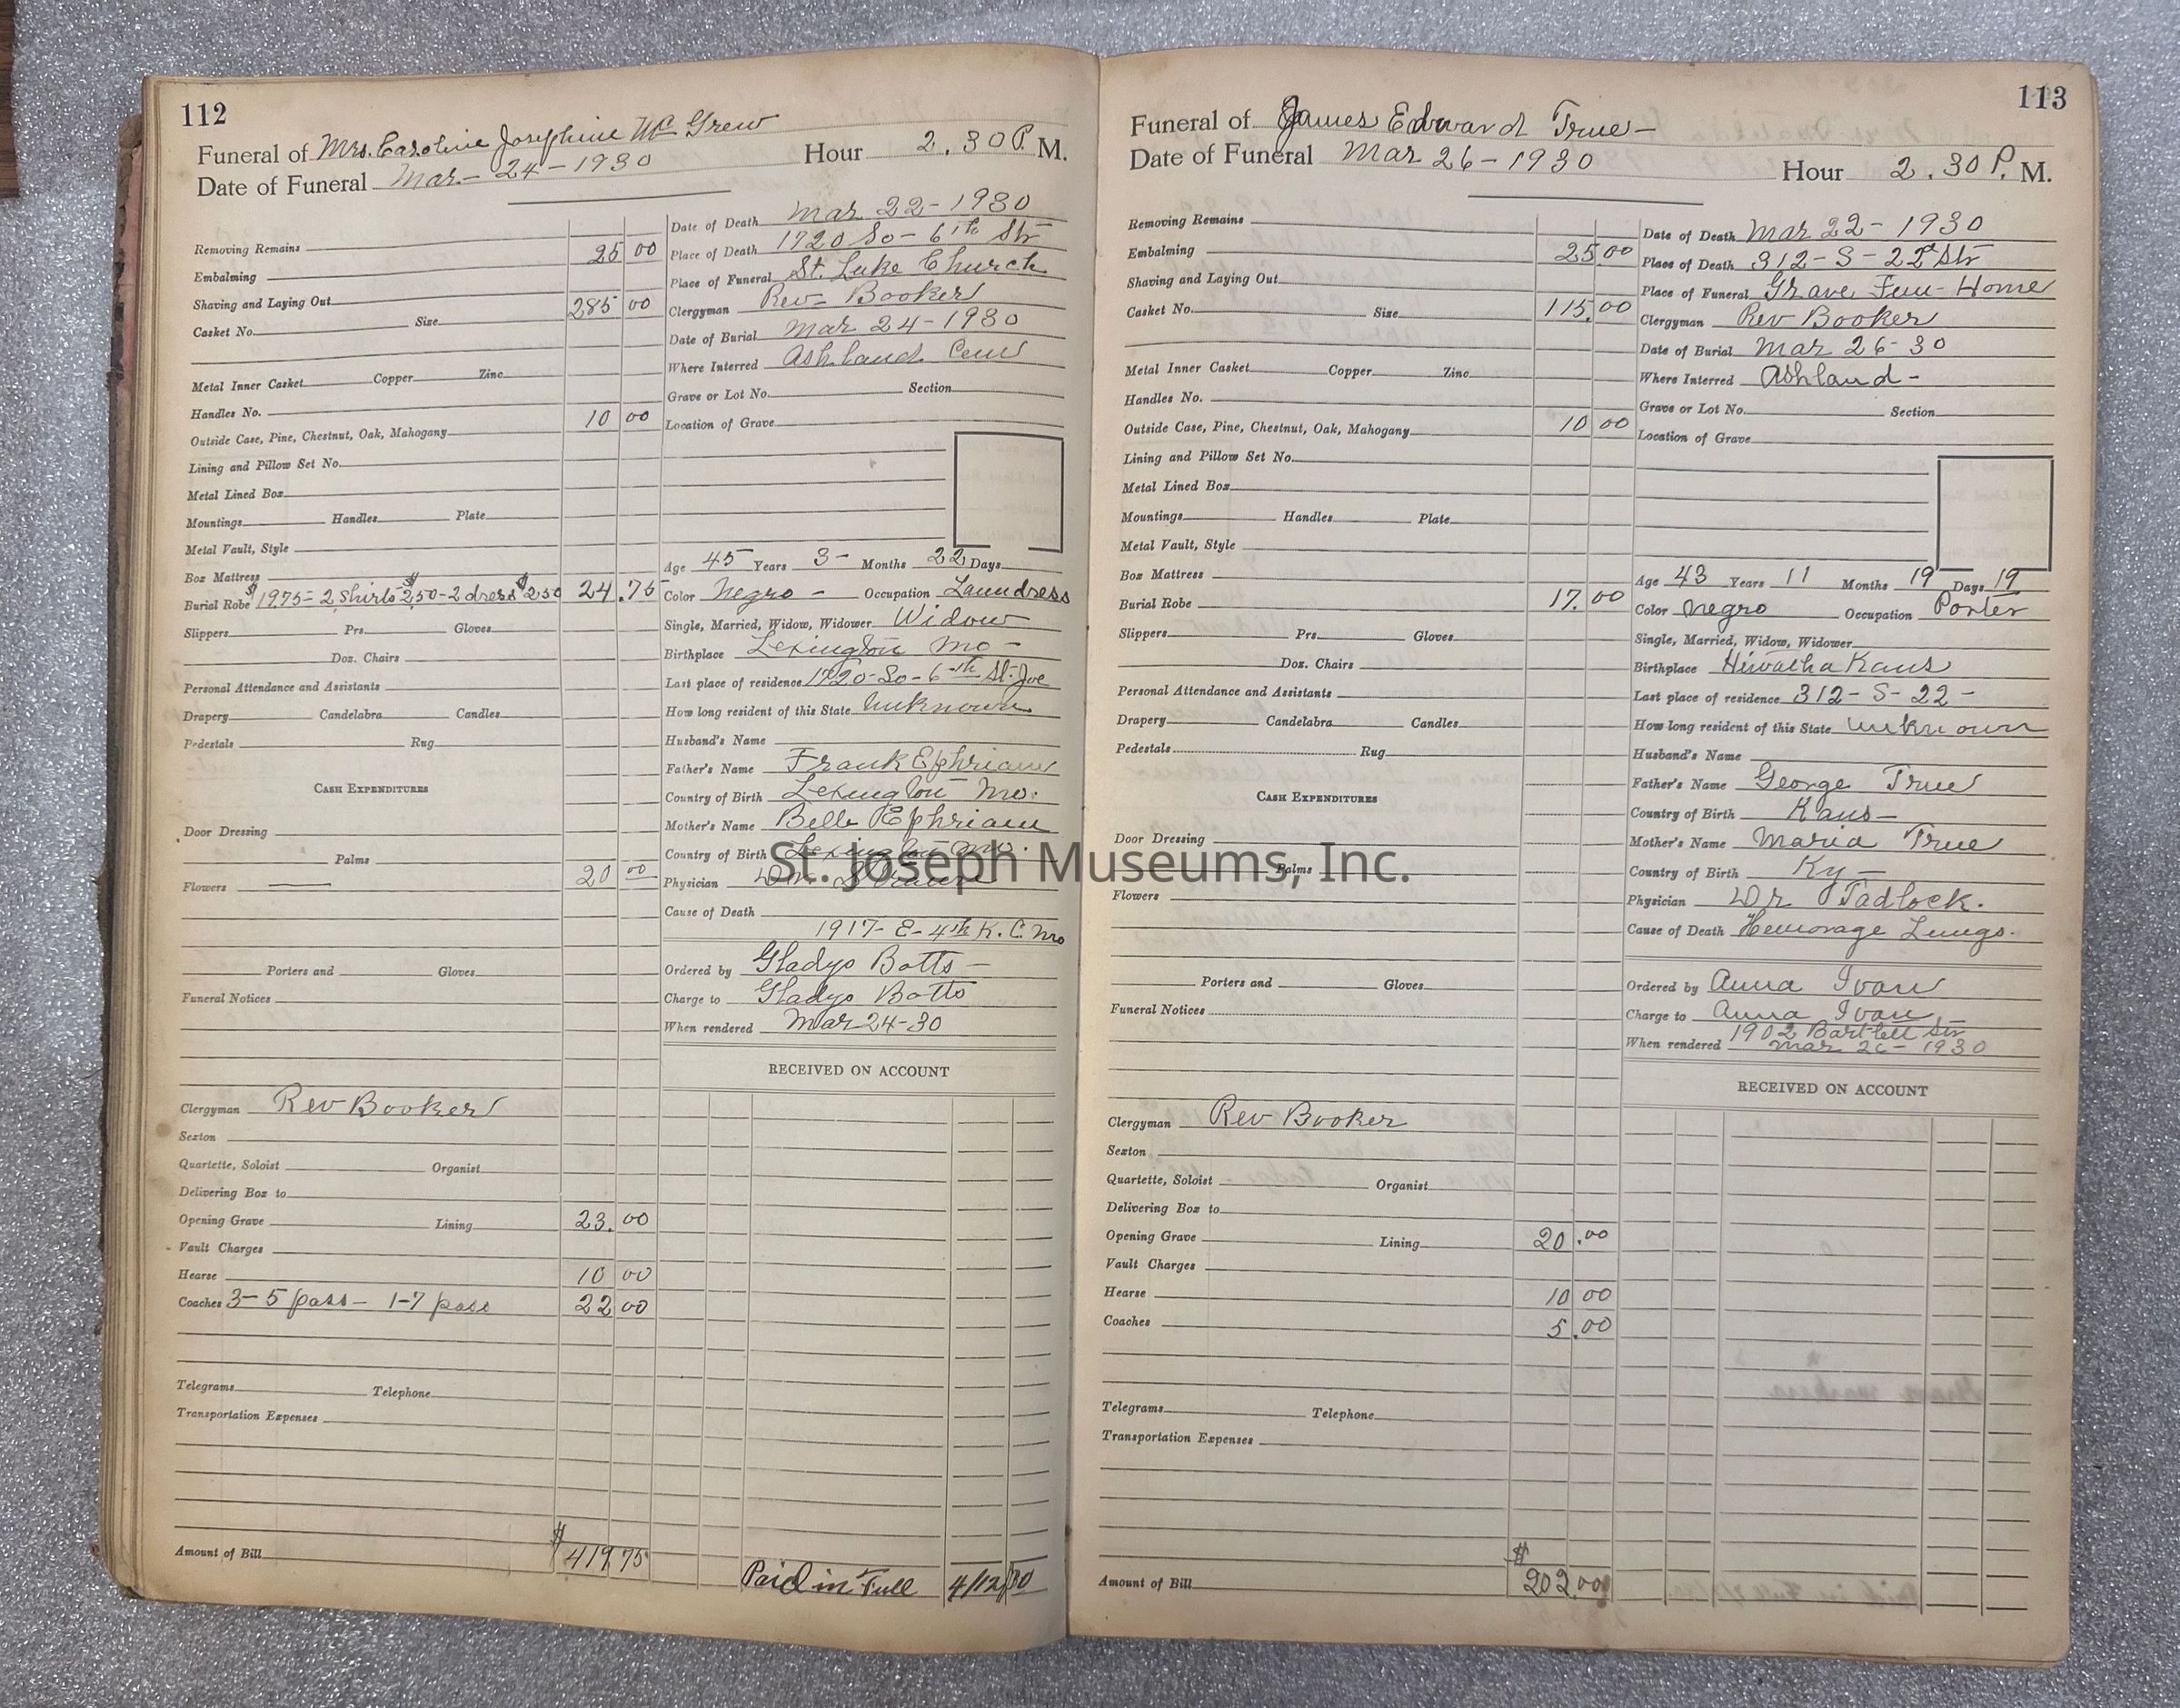 112
Funeral of Mrs. Caroline Josephine Mc Grew
Date of Funeral Mar. - 24 - 1930 Hour 2.30 P. M.
Removing Remains
Embalming 25 00
Shaving and Laying Out
Casket No. Size 285 00
Metal Inner Casket Copper Zinc
Handles No.
Outside Case, Pine, Chestnut, Oak, Mahogany 10 00
Lining and Pillow Set No.
Metal Lined Box
Mountings Handles Plate
Metal Vault, Style
Box Mattress
Burial Robe $19.75 = 2 Shirts $2.50 - 2 dress $2.50 24.75
Slippers Prs. Gloves
Doz. Chairs
Personal Attendance and Assistants
Drapery Candelabra Candles
Pedestals Rug
CASH EXPENDITURES
Door Dressing
Palms
Flowers 20 00
Porters and Gloves
Funeral Notices
Clergyman Rev Booker
Sexton
Quartette, Soloist Organist
Delivering Box to
Opening Grave Lining 23.00
Vault Charges
Hearse 10 00
Coaches 3 - 5 pass - 1-7 pass 22 00
Telegrams Telephone
Transportation Expenses
Amount of Bill $419 75
Date of Death Mar 22 - 1930
Place of Death 1720 So - 6th Str
Place of Funeral St. Luke Church
Clergyman Rev - Booker
Date of Burial Mar 24 - 1930
Where Interred Ashland Cem
Grave or Lot No. Section
Location of Grave
Age 45 Years 3 - Months 22 Days
Color Negro - Occupation Laundress
Single, Married, Widow, Widower Widow
Birthplace Lexington Mo -
Last place of residence 1720 - So - 6th St. Joe
How long resident of this State Unknown
Husband's Name
Father's Name Frank Ephriam
Country of Birth Lexington Mo.
Mother's Name Belle Ephriam
Country of Birth Lexington Mo.
Physician Dr.
Cause of Death
1917 - E - 4th K. C. Mo
Ordered by Gladys Botts -
Charge to Gladys Botts
When rendered Mar 24 - 30
RECEIVED ON ACCOUNT
Paid in Full 4/12/30
113
Funeral of James Edward True -
Date of Funeral Mar 26 - 1930 Hour 2.30 P. M.
Removing Remains
Embalming 25.00
Shaving and Laying Out
Casket No. Size 115.00
Metal Inner Casket Copper Zinc
Handles No.
Outside Case, Pine, Chestnut, Oak, Mahogany 10 00
Lining and Pillow Set No.
Metal Lined Box
Mountings Handles Plate
Metal Vault, Style
Box Mattress
Burial Robe 17.00
Slippers Prs. Gloves
Doz. Chairs
Personal Attendance and Assistants
Drapery Candelabra Candles
Pedestals Rug
CASH EXPENDITURES
Door Dressing
Palms
Flowers
Porters and Gloves
Funeral Notices
Clergyman Rev Booker
Sexton
Quartette, Soloist Organist
Delivering Box to
Opening Grave Lining 20.00
Vault Charges
Hearse 10 00
Coaches 5.00
Telegrams Telephone
Transportation Expenses
Amount of Bill $202.00
Date of Death Mar 22 - 1930
Place of Death 312 - S - 22d Str
Place of Funeral Grave Fun - Home
Clergyman Rev Booker
Date of Burial Mar 26 - 30
Where Interred Ashland -
Grave or Lot No. Section
Location of Grave
Age 43 Years 11 Months 19 Days 19
Color Negro Occupation Porter
Single, Married, Widow, Widower
Birthplace Hiwatha Kans
Last place of residence 312 - S - 22 -
How long resident of this State Unknown
Husband's Name
Father's Name George True
Country of Birth Kans -
Mother's Name Maria True
Country of Birth Ky -
Physician Dr Tadlock.
Cause of Death Hemorage Lungs.
Ordered by Anna Ivan
Charge to Anna Ivan
1902 Bartlett Str
When rendered Mar 26 - 1930
RECEIVED ON ACCOUNT
St. Joseph Museums, Inc.